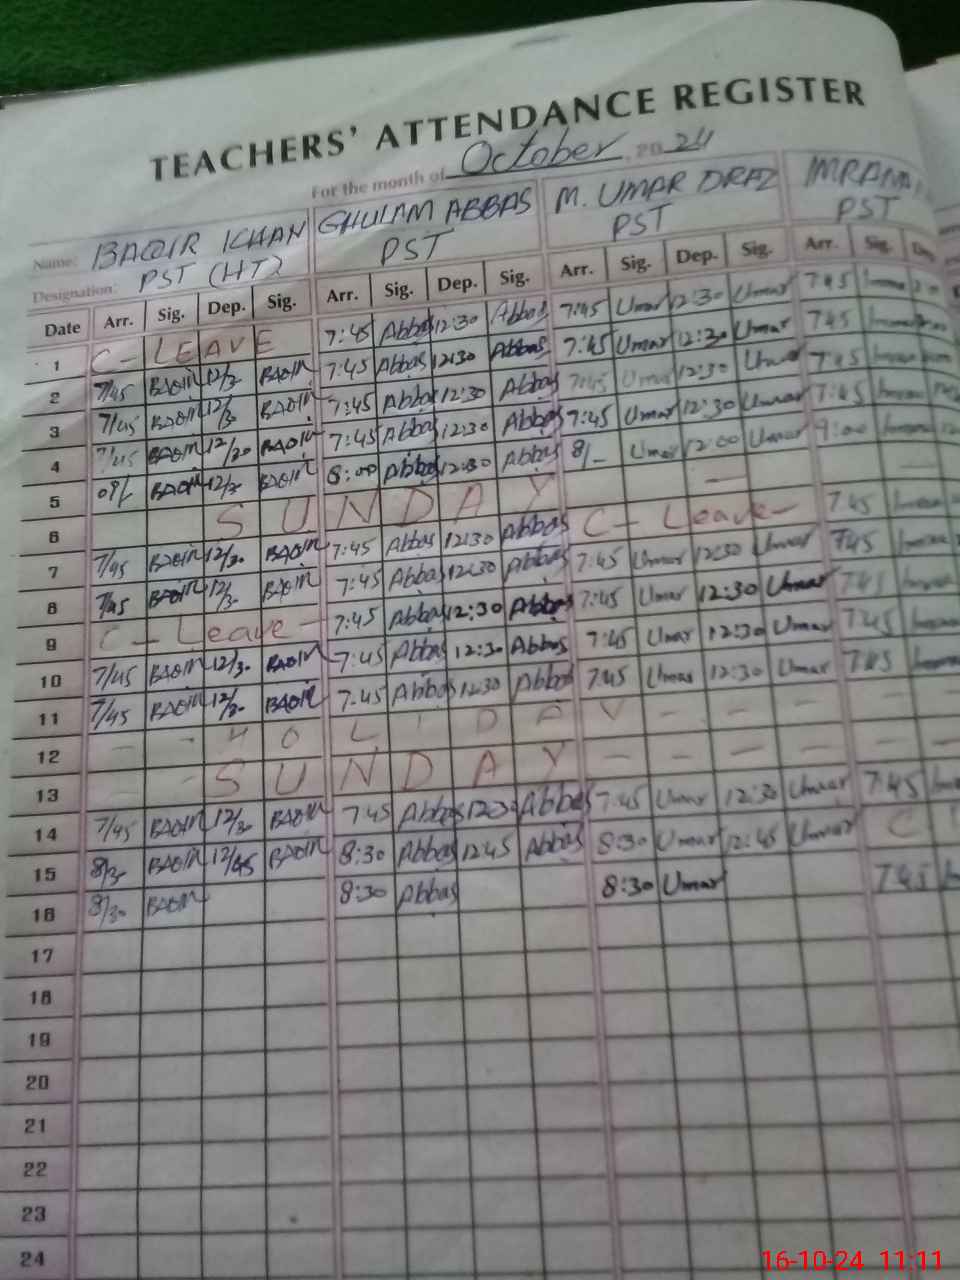 TEACHERS' ATTENDANCE REGISTER
For the month of October, 20 24
Name: BAQIR KHAN GHULAM ABBAS M. UMAR DRAZ IMRAN
Designation: PST (HT) PST PST PST
Date Arr. Sig. Dep. Sig. Arr. Sig. Dep. Sig. Arr. Sig. Dep. Sig. Arr. Sig.
1 C - LEAVE 7:45 Abbas 12:30 Abbas 7:45 Umar 12:30 Umar 7:45
2 7/45 BAQIR 12/3 BAQIR 7:45 Abbas 12:30 Abbas 7:45 Umar 12:30 Umar 7:45
3 7/45 BAQIR 12/3 BAQIR 7:45 Abbas 12:30 Abbas 7:45 Umar 12:30 Umar 7:45
4 7/45 BAQIR 12/30 BAQIR 7:45 Abbas 12:30 Abbas 7:45 Umar 12:30 Umar 7:45
5 BAQIR 12/3 BAQIR 8:00 Abbas 12:30 Abbas 8/- Umar 12:00 Umar 9:00
6 SUNDAY
7 7/45 BAQIR 12/30 BAQIR 7:45 Abbas 12:30 Abbas C - Leave - 7:45
8 7/45 BAQIR 12/3 BAQIR 7:45 Abbas 12:30 Abbas 7:45 Umar 12:30 Umar 7:45
9 C - Leave - 7:45 Abbas 12:30 Abbas 7:45 Umar 12:30 Umar 7:45
10 7/45 BAQIR 12/3 BAQIR 7:45 Abbas 12:30 Abbas 7:45 Umar 12:30 Umar 7:45
11 7/45 BAQIR 12/3 BAQIR 7:45 Abbas 12:30 Abbas 7:45 Umar 12:30 Umar 7:45
12 - - HOLIDAY - - - - -
13 - - SUNDAY - - - - -
14 7/45 BAQIR 12/30 BAQIR 7:45 Abbas 12:30 Abbas 7:45 Umar 12:30 Umar 7:45
15 8/30 BAQIR 12/45 BAQIR 8:30 Abbas 12:45 Abbas 8:30 Umar 12:45 Umar C
16 8/30 BAQIR 8:30 Abbas 8:30 Umar 7:45
17
18
19
20
21
22
23
24
16-10-24 11:11